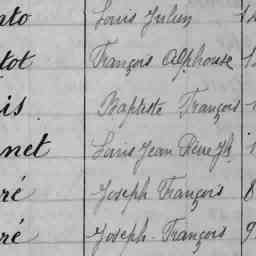 nto Louis Julien 1
tot François Alphouse 1
is Baptiste François 1
net Louis Jean Pierre Jh 1
ré Joseph François 8
ré Joseph-François 9